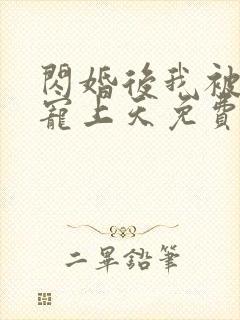 閃婚後我被
寵上天免費
二畢鉛筆